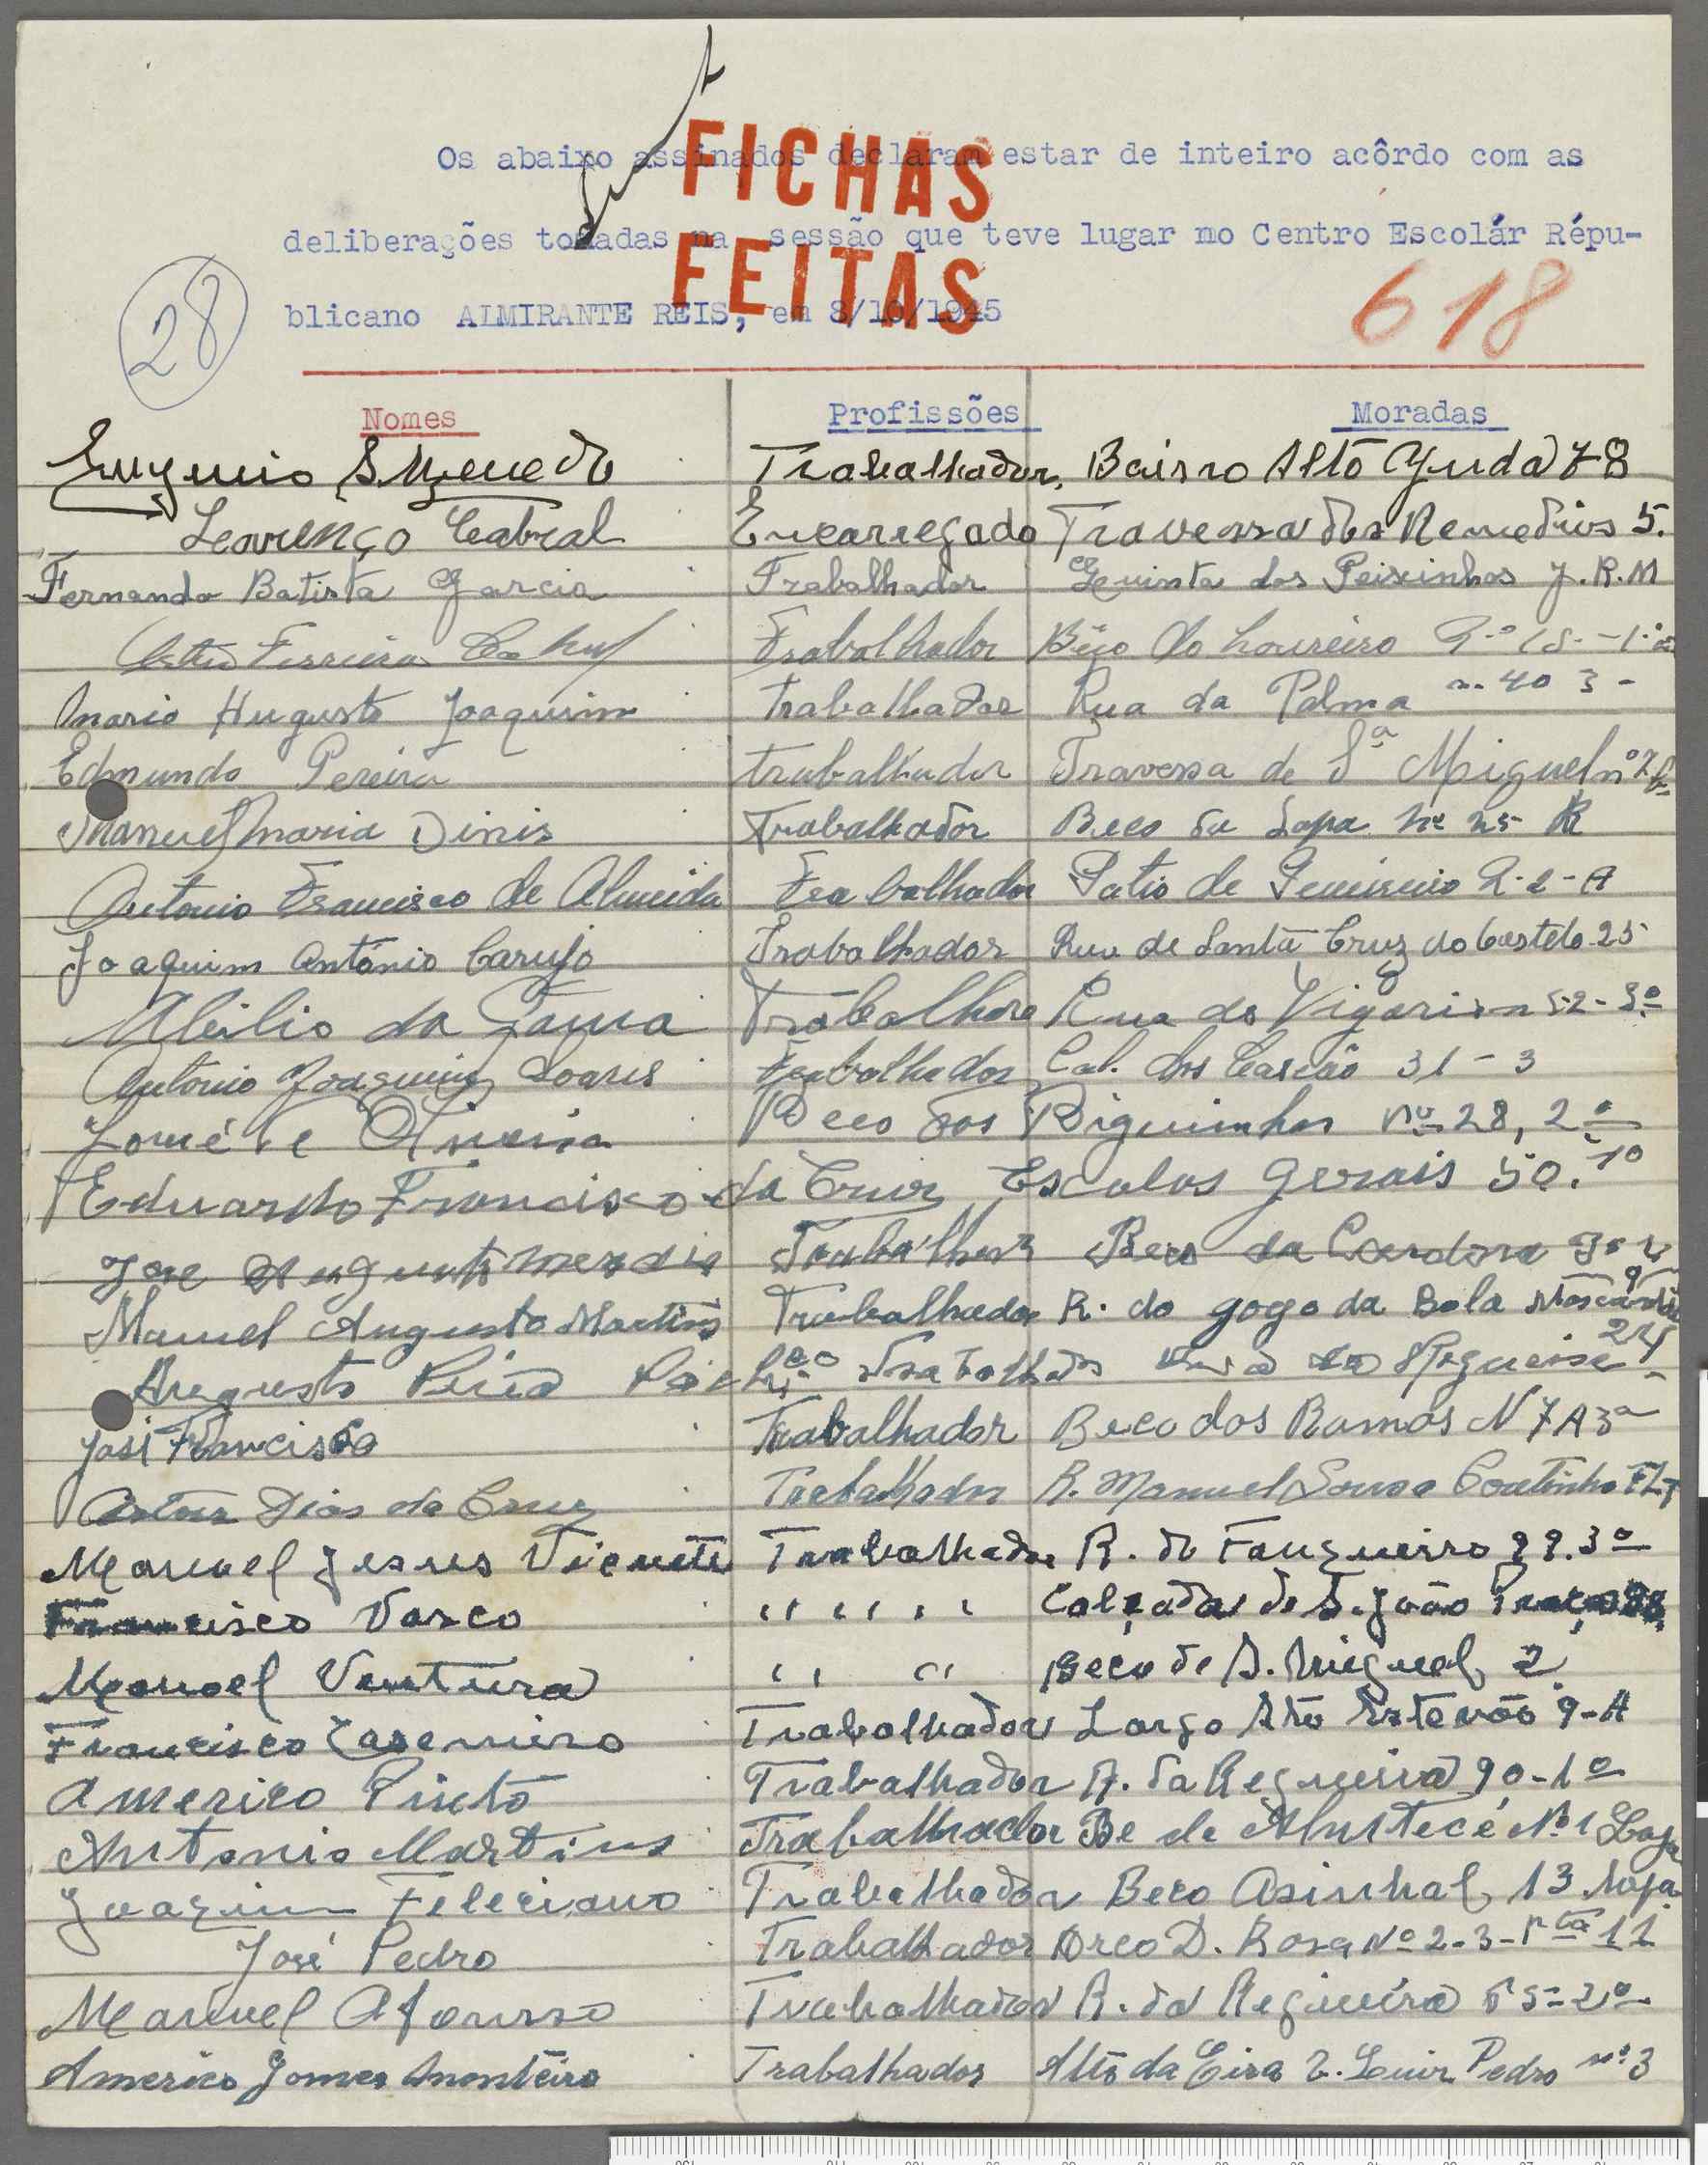 Os abaixo assinados declaram estar de inteiro acôrdo com as
FICHAS
deliberações tomadas na sessão que teve lugar no Centro Escolár Répu-
FEITAS
28
618
blicano ALMIRANTE REIS, em 8/10/1945
Nomes Profissões Moradas
Eugenio S. Trabalhador, Bairro Alto Ajuda 78
Lourenço Cabral Encarregado Travessa dos Remedios 5.
Fernando Batista Garcia Trabalhador Quinta dos Peixinhos J.R.M
Ferreira Trabalhador Bêco do Loureiro
Mario Hugusto Joaquim trabalhador Rua da Palma n. 40 3-
Edmundo Pereira trabalhador Travessa de Sª Miguel nº
Manuel Maria Dinis Trabalhador Beco da Lapa 25 R
Antonio Francisco de Almeida Trabalhador Patio de
Joaquim António Carujo Trabalhador Rua de Santa Cruz do Castelo 25
Abilio da Gama Rua do Vigario n 52-3º
Antonio Joaquim Soares Trabalhador Cal. dos Cascão 31-3
de Oliveira Beco dos Biguinhos Nº 28, 2º
Eduardo Francisco da Cruz Escolas Gerais 50.
Jose Augusto Beco da
Manuel Augusto Martins Trabalhador R. do gogo da Bola
Augusto 24
José Francisco Trabalhador Beco dos Ramos N 7 A 3º
Artur Dias da Cruz Trabalhador R. Manuel Sousa Coutinho
Manuel Jesus Vicente Trabalhador R. do Fanqueirro 3º
Francisco Vasco " " " Calçada de S. João
Manoel Ventura " " Beco de S. Miguel, 2
Francisco Casemiro Trabalhador Largo Stº Estevão 9-A
Americo Pinto Trabalhador R. da Regueira 90-1º
Antonio Martins Trabalhador Be de Nº 1 Loja
Joaquim Feleciano Trabalhador Beco Asinhal, 13 loja
José Pedro Trabalhador D. Rosa Nº 2-3-Pta 11
Manuel Afonsso Trabalhador R. da Regueira 2º
Americo Gomes Monteiro Trabalhador Alto da Eira Pedro nº 3